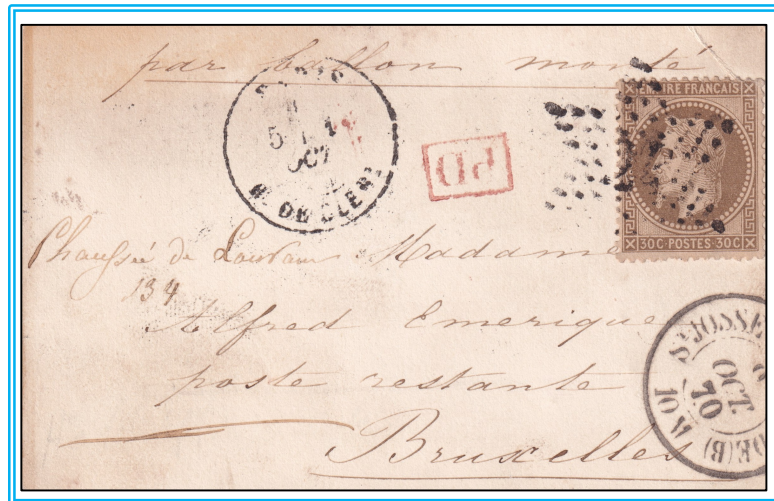 par ballon monté
OCT
R. DE CLERY
PD
EMPIRE FRANÇAIS
30C·POSTES·30C
Chaussée de Louvain Madame
134
Alfred Emerique
poste restante
Bruxelles
ST JOSSE
OCT
70
10M
DE(B)